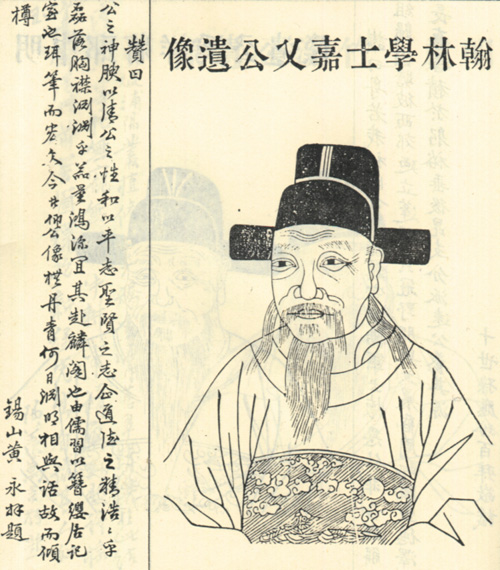 翰林學士嘉乂公遺像
贊曰
公之神腴以清公之性和以平志聖賢之志合道德之精浩浩乎
磊落胸襟淵淵乎器量鴻深宜其赴麟閣也由儒習以簪纓居記
室也珥筆而矣今公像丹青何日淵明相與話故而傾
樽
錫山黃永題